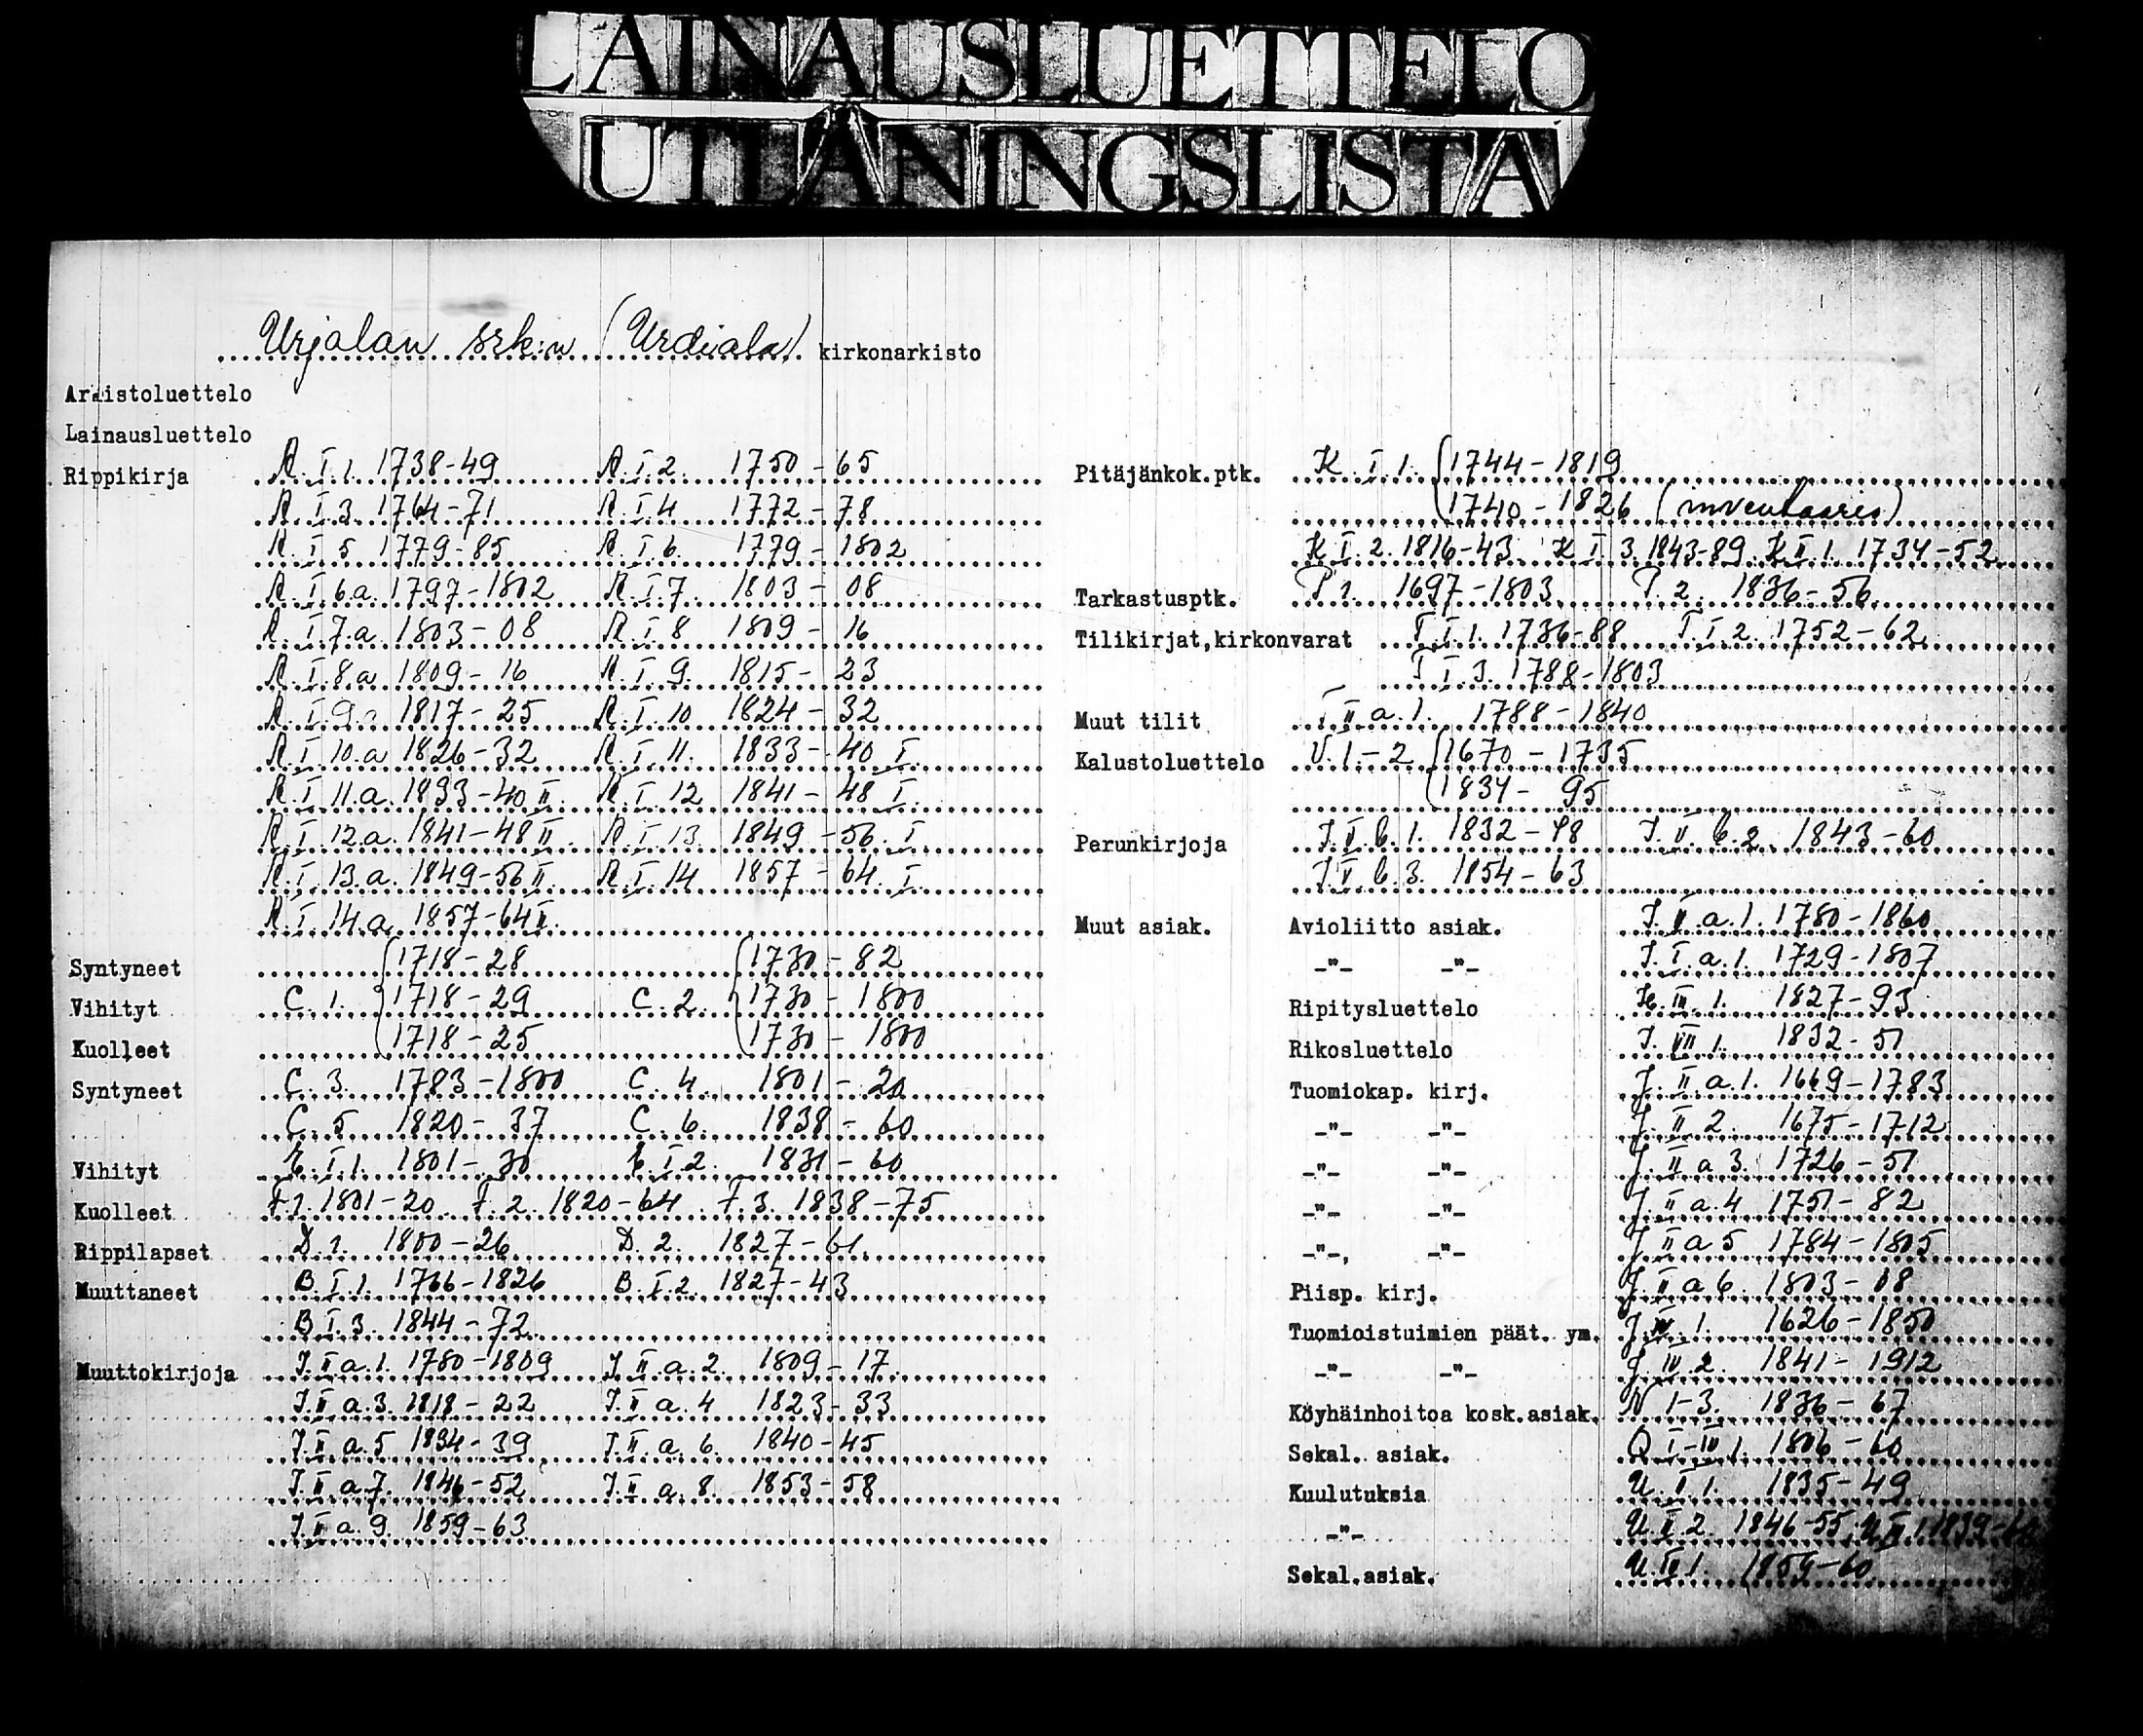 LAINAUSLUETTELO
UTLÅNINGSLISTA
Urjalan srk:n (Urdiala) kirkonarkisto
Arkistoluettelo
Lainausluettelo
Rippikirja A.I.1. 1738-49 A.I.2. 1750-65
A.I.3. 1764-71 A.I.4 1772-78
A.I.5 1779-85 A.I.6. 1779-1802
A.I.6.a. 1797-1802 A.I.7. 1803-08
A.I.7.a. 1803-08 A.I.8 1809-16
A.I.8.a 1809-16 A.I.9. 1815-23
A.I.9.a 1817-25 A.I.10 1824-32
A.I.10.a 1826-32 A.I.11. 1833-40 I.
A.I.11.a. 1833-40 II. A.I.12 1841-48 I.
A.I.12.a. 1841-48 II. A.I.13. 1849-56. I.
A.I.13.a. 1849-56 II. A.I.14 1857-64. I.
A.I.14.a. 1857-64 II.
Syntyneet 1718-28 1730-82
Vihityt C.1. 1718-29 C.2. 1730-1800
Kuolleet 1718-25 1730-1800
Syntyneet C.3. 1783-1800 C.4. 1801-20
C.5 1820-37 C.6. 1838-60
Vihityt E.I.1. 1801-30 E.I.2. 1831-60
Kuolleet F.1. 1801-20 F.2. 1820-64 F.3. 1838-75
Rippilapset D.1. 1800-26 D.2. 1827-61.
Muuttaneet B.I.1. 1766-1826 B.I.2. 1827-43
B.I.3. 1844-72.
Muuttokirjoja J.II a.1. 1780-1809 J.II a.2. 1809-17
J.II a.3. 1818-22 J.II a.4 1823-33
J.II a.5 1834-39 J.II a.6. 1840-45
J.II a.7. 1846-52 J.II a.8. 1853-58
J.II a.9. 1859-63
Pitäjänkok.ptk. K.I.1. 1744-1819
1740-1826 (inventaario)
K I.2. 1816-43. K I.3. 1843-89. K II.1. 1734-52
Tarkastusptk. P 1. 1697-1803 P.2. 1836-56
Tilikirjat,kirkonvarat T.I.1. 1736-88 T.I.2. 1752-62
T.I.3. 1788-1803
Muut tilit T II a.1. 1788-1840
Kalustoluettelo U.1-2 1670-1735
1834-95
Perunkirjoja J.V.b.1. 1832-48 J.V.b.2. 1843-60
J.V.b.3. 1854-63
Muut asiak. Avioliitto asiak. J.V.a.1. 1780-1860
-"- -"- J.I.a.1. 1729-1807
Ripitysluettelo H.III.1. 1827-93
Rikosluettelo J.VII.1. 1832-51
Tuomiokap. kirj. J.II.a.1. 1669-1783
-"- -"- J.II 2. 1675-1712
-"- -"- J.II a 3. 1726-51
-"- -"- J.II a.4 1751-82
-"-, -"- J II a 5 1784-1805
Piisp. kirj. J.II a 6. 1803-08
Tuomioistuimien päät. ym. J.IV.1. 1626-1850
-"- -"- J IV.2. 1841-1912
Köyhäinhoitoa kosk.asiak. N 1-3. 1836-67
Sekal. asiak. Q I-IV 1. 1806-60
Kuulutuksia U.I 1. 1835-49
-"- U.II.2. 1846-55, 1839-
Sekal.asiak. 1859-60